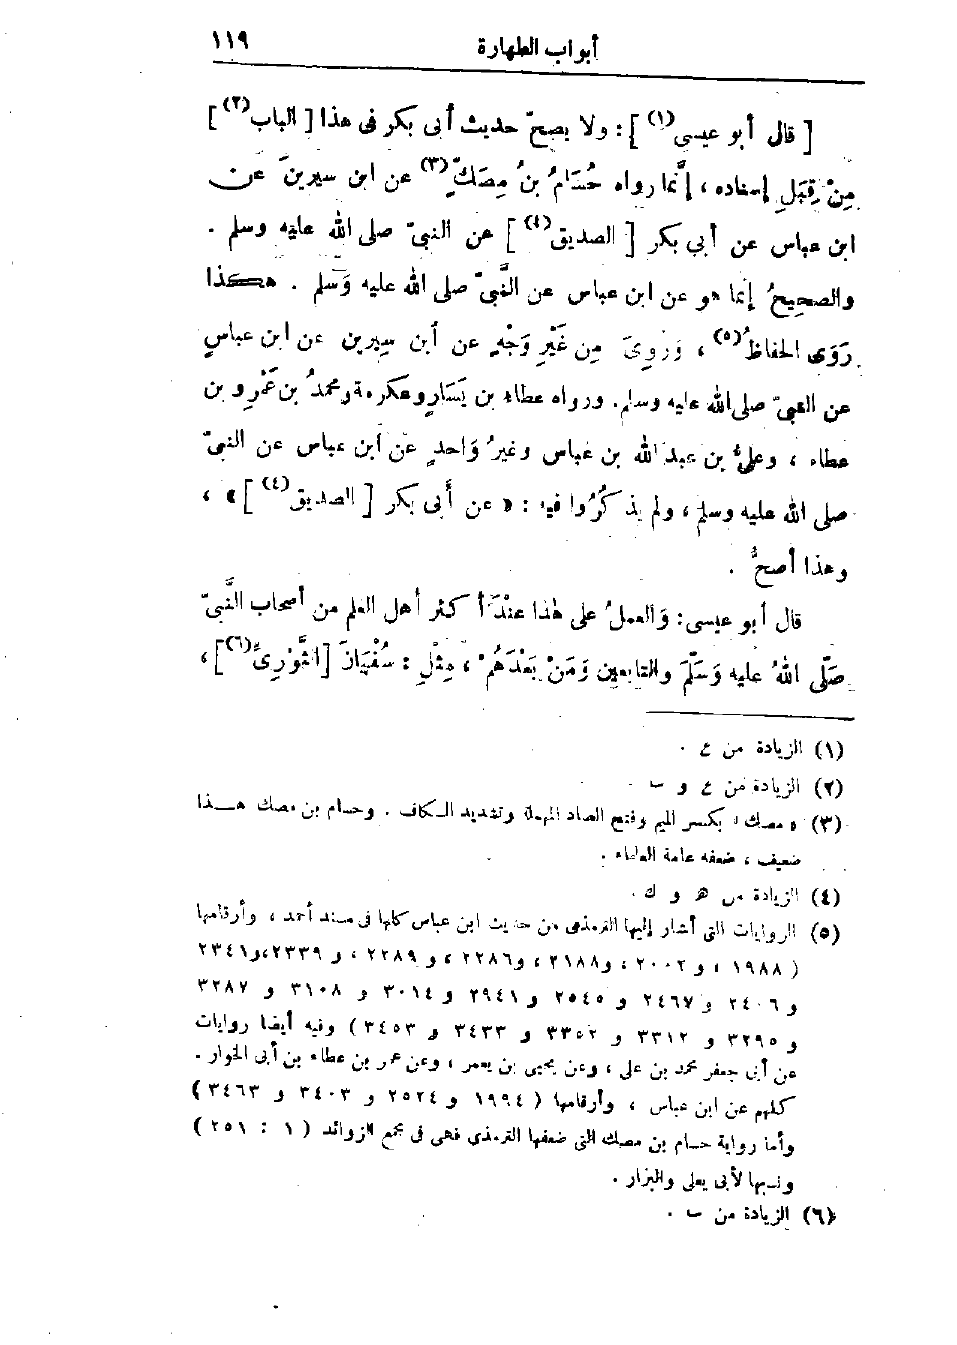 أبواب الطهارة ١١٩
[ قال أبو عيسى(١) ] : ولا يصحّ حديث أبى بكر فى هذا [ الباب(٢) ]
مِنْ قِبَلِ إسناده ، إنَّما رواه حُسَامُ بنُ مِصَكٍّ(٣) عن ابن سيرينَ عن
ابن عباس عن أبي بكر [ الصديق(٤) ] عن النبىّ صلى الله عليه وسلم .
والصحيحُ إنما هو عن ابن عباس عن النَّبىّ صلى الله عليه وَسَلم . هكذا
رَوَى الحفاظُ(٥) ، وَرُوِىَ مِن غَيْرِ وَجْهٍ عن ابن سِيرين عن ابن عباسٍ
عن النبىّ صلى الله عليه وسلم. ورواه عطاء بن يَسَارٍ وعكرمة ومحمدُ بن عَمْرو بن
عطاء ، وعلىُّ بن عبد الله بن عباس وغيرُ وَاحدٍ عن ابن عباس عن النبىّ
صلى الله عليه وسلم ، ولم يذكُرُوا فيه : « عن أبى بكر [ الصديق(٤) ] » ،
وهذا أصحُّ .
قال أبو عيسى: وَالعملُ على هٰذا عِنْدَ أكثر أهل العلم من أصحاب النَّبىّ
صَلَّى اللهُ عليه وَسَلَّمَ والتابعين وَمَنْ بَعْدَهُمْ ، مِثْلِ : سُفْيَانَ [الثَّوْرِىِّ(٦)] ،
(١) الزيادة من ع .
(٢) الزيادة من ع و ب .
(٣) « مصك » بكسر الميم وفتح الصاد المهملة وتشديد الكاف . وحسام بن مصك هذا
ضعيف ، ضعفه عامة العلماء .
(٤) الزيادة من هـ و ك .
(٥) الروايات التى أشار إليها الترمذى من حديث ابن عباس كلها فى مسند أحمد ، وأرقامها
( ١٩٨٨ ، و ٢٠٠٢ ، و ٢١٨٨ ، و ٢٢٨٦ ، و ٢٢٨٩ ، و ٢٣٣٩ ، و ٢٣٤١
و ٢٤٠٦ و ٢٤٦٧ و ٢٥٤٥ و ٢٩٤١ و ٣٠١٤ و ٣١٠٨ و ٣٢٨٧
و ٣٢٩٥ و ٣٣١٢ و ٣٣٥٢ و ٣٤٣٣ و ٣٤٥٣ ) وفيه أيضا روايات
عن أبى جعفر محمد بن على ، وعن يحيى بن يعمر ، وعن عمر بن عطاء بن أبى الخوار .
كلهم عن ابن عباس ، وأرقامها ( ١٩٩٤ و ٢٥٢٤ و ٣٤٠٣ و ٣٤٦٣ )
وأما رواية حسام بن مصك التى ضعفها الترمذي فهى فى مجمع الزوائد ( ١ : ٢٥١ )
ونسبها لأبى يعلى والبزار .
(٦) الزيادة من ب .